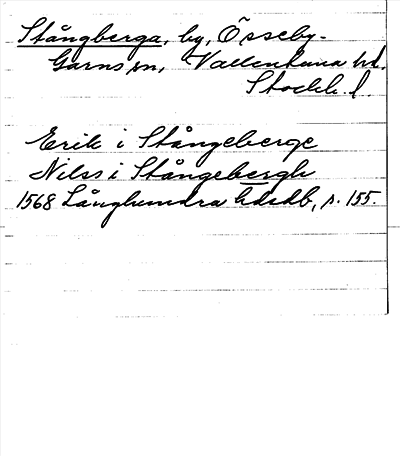 Stångberga, by, Össeby-
Garns sn, Vallentuna hd.
Stockh. l.
Erik i Stångeberge
Nilss i Stångebergh
1568 Långhundra hdsdb, s. 155.